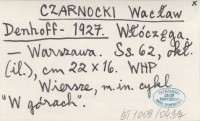 CZARNOCKI Wacław
Denhoff - 1927. Włóczęga.
— Warszawa. Ss. 62, okł.
(il.), cm 22 x 16. WHP
Wiersze, m.in. cykl
"W górach".